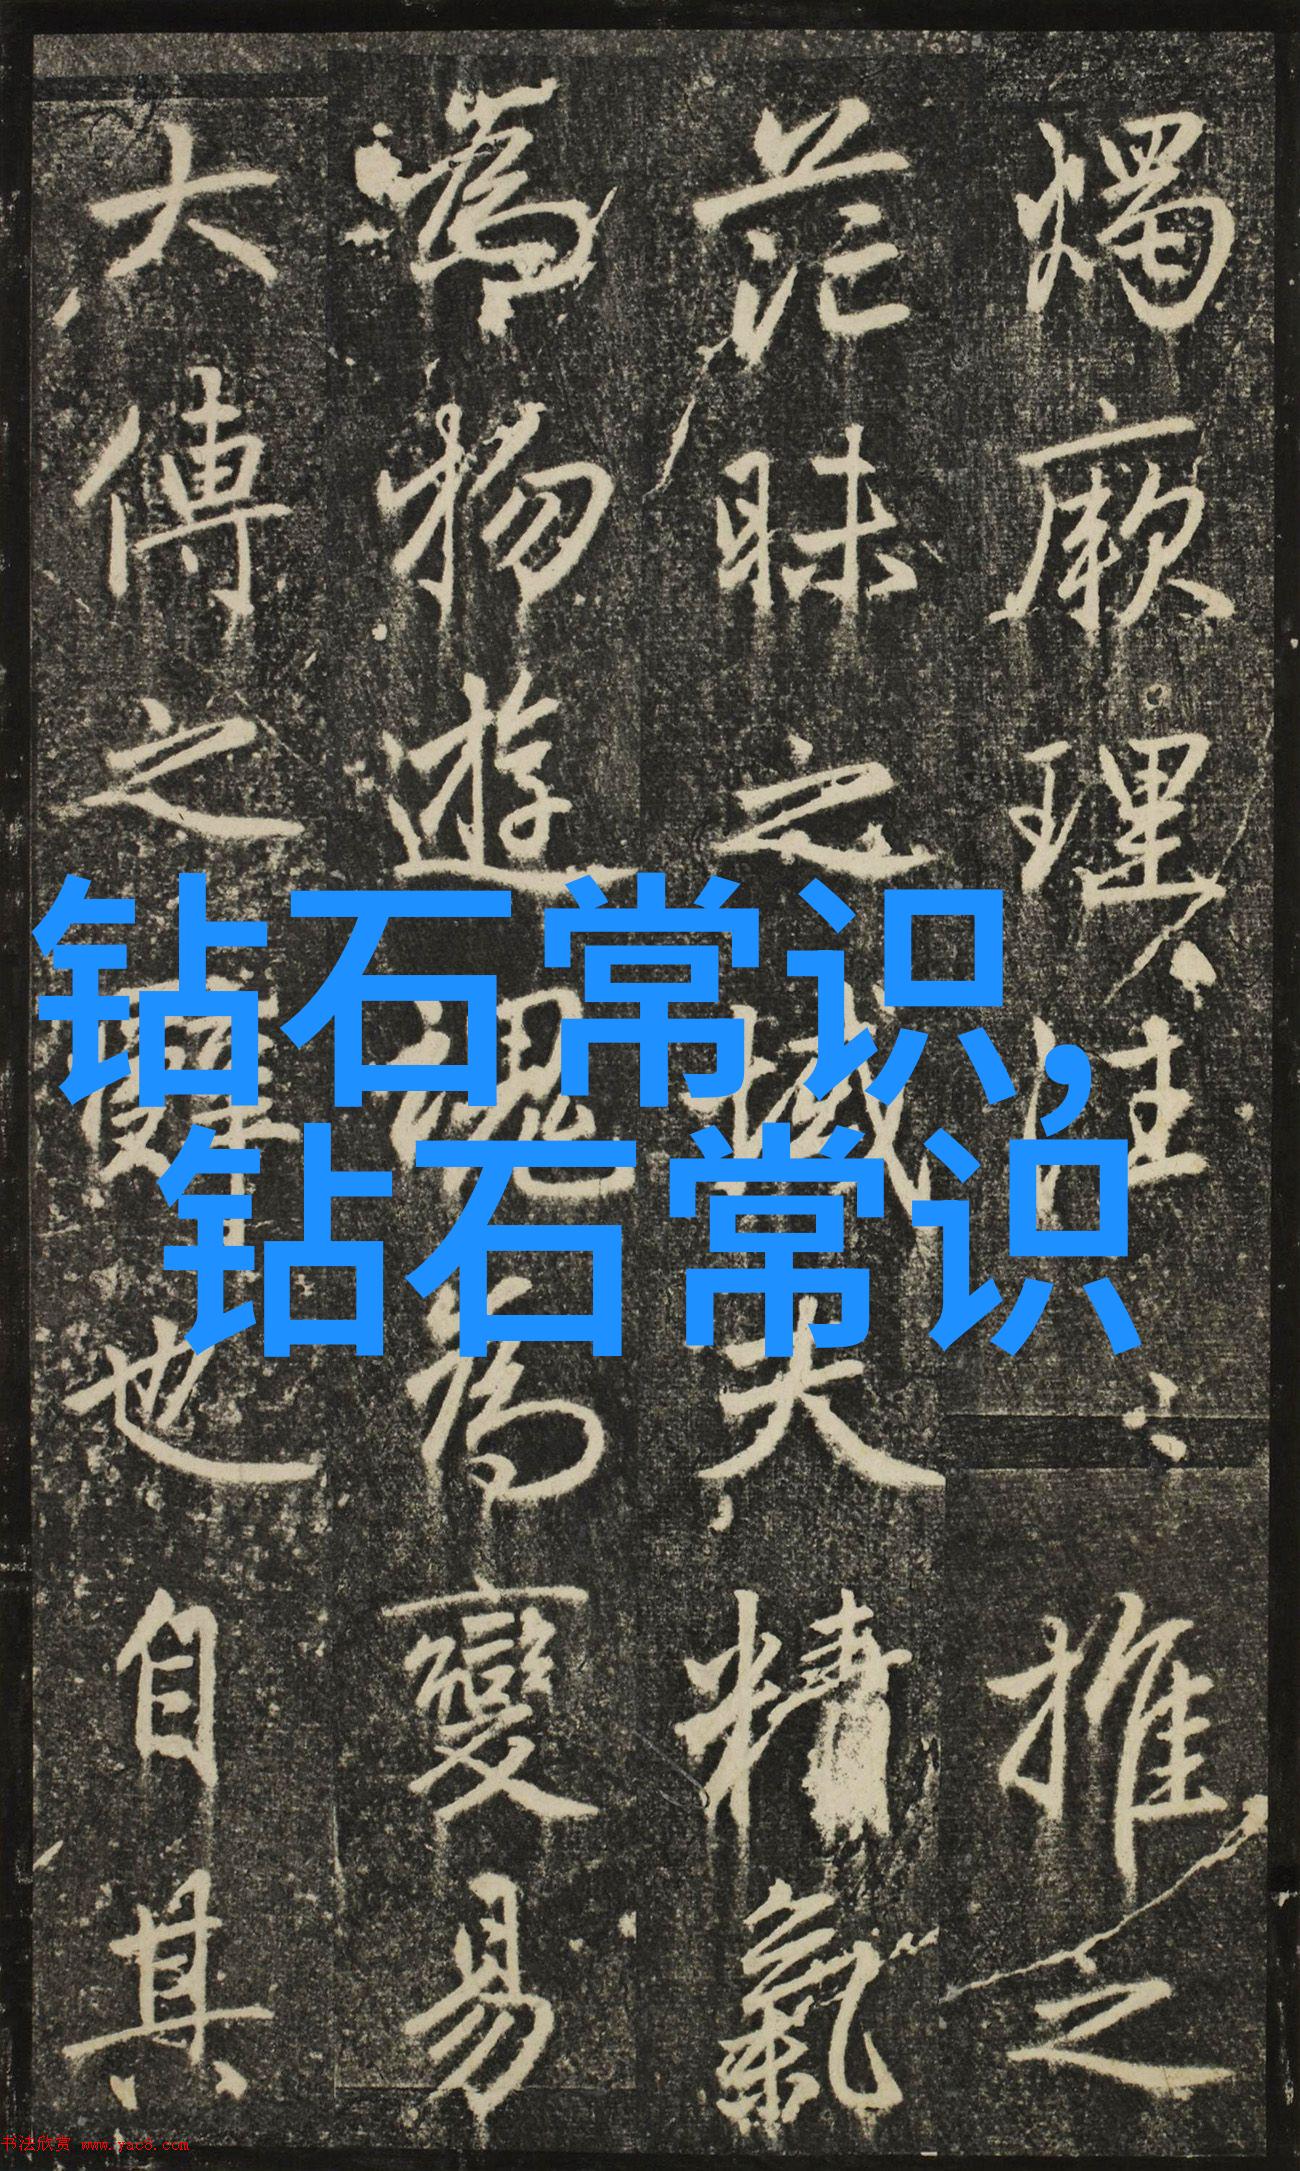 燭厥理推之
茫昧之域夫精氣
為物遊魂為變易
大傳之辭也自其
钻石常识,
钻石常识
书法欣赏 www.yac8.com